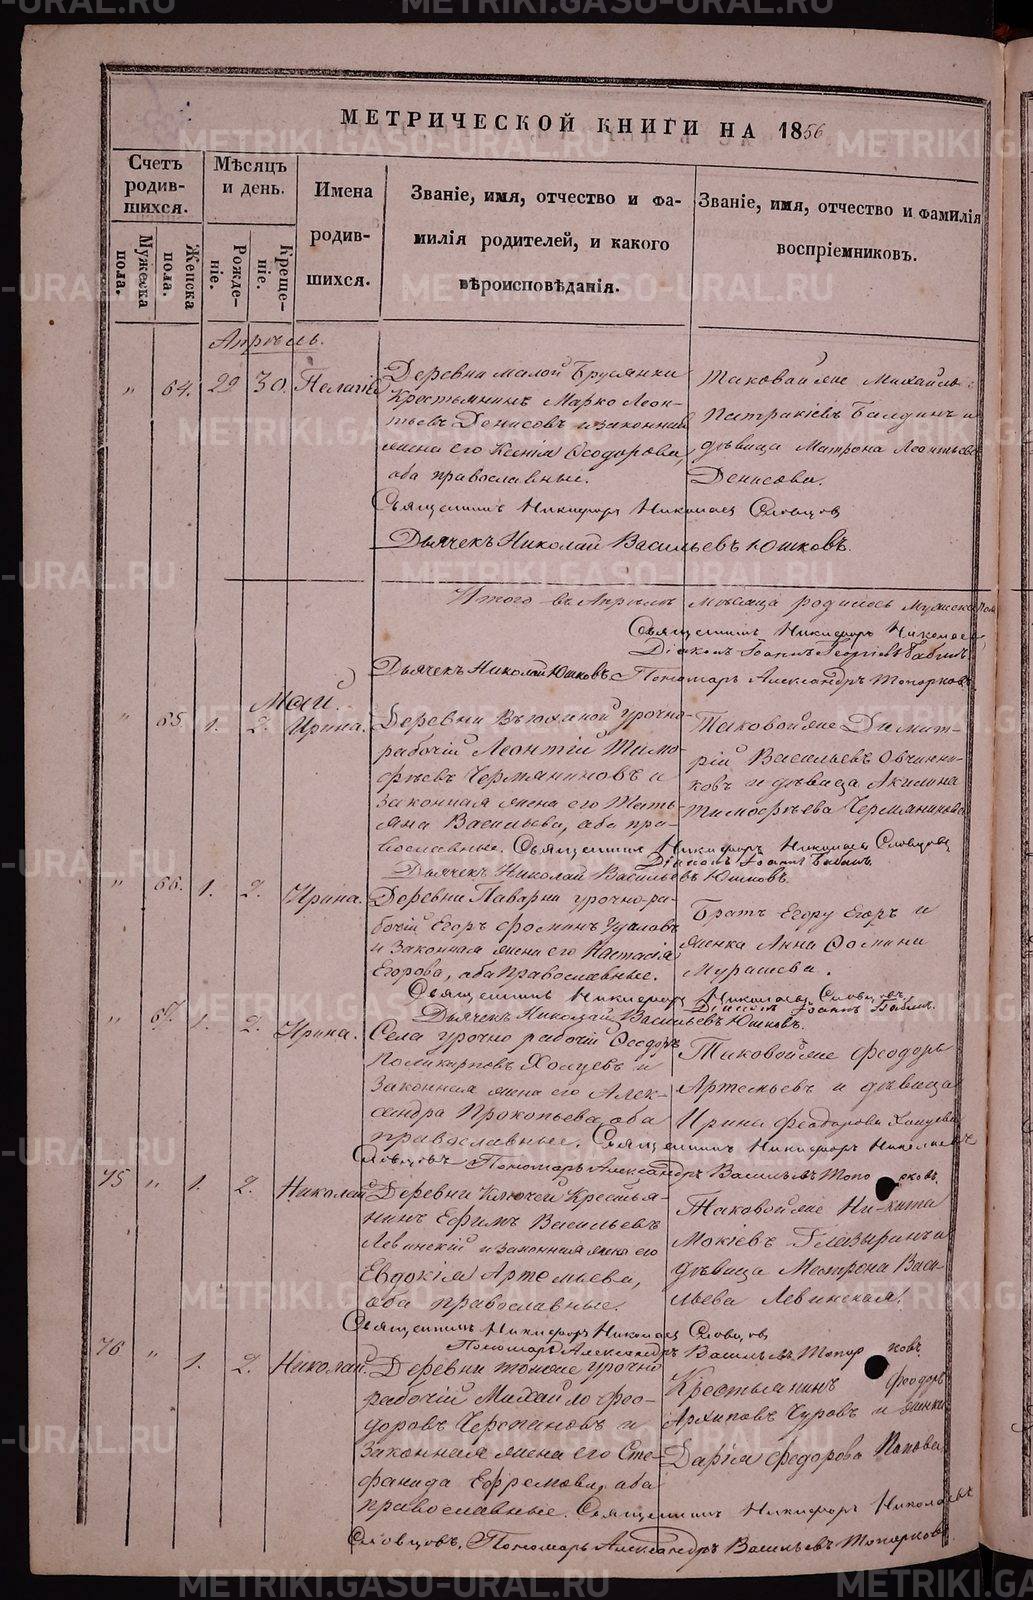 МЕТРИЧЕСКОЙ КНИГИ НА 1856
Счетъ родившихся.
Мужеска пола.
Женска пола.
Мѣсяцъ и день.
Рожденіе.
Крещеніе.
Имена родившихся.
Званіе, имя, отчество и фамилія родителей, и какого вѣроисповѣданія.
Званіе, имя, отчество и фамилія воспріемниковъ.
Апрѣль.
" 64. 29 30. Пелагія
Деревни малой Бруснянки
Крестьянинъ Марко Леон-
тьевъ Денисовъ и законная
жена его Ксенія Ѳеодорова,
оба православные.
Таковой же Михайло
Патракіевъ Балдинъ и
дѣвица Матрона Леонтьева
Денисова.
Священникъ Никифоръ Николаевъ Словцовъ
Дьячекъ Николай Васильевъ Юшковъ.
Итого въ Апрѣлѣ мѣсяца родилось Мужеска пола
Священникъ Никифоръ Николаевъ
Діаконъ Іоаннъ Георгіевъ Бабинъ
Дьячекъ Николай Юшковъ Пономарь Александръ Топорковъ
Май.
" 65. 1. 2. Ирина.
Деревни урочно-
рабочій Леонтій Тимо-
фѣевъ Чермяниновъ и
законная жена его Тать-
яна Васильева, оба пра-
вославные.
Таковой же Димит-
рій Васильевъ Овчинни-
ковъ и дѣвица Акилина
Тимоѳеева Чермянинова
Священникъ Никифоръ Николаевъ Словцовъ
Діаконъ Іоаннъ Бабинъ.
Дьячекъ Николай Васильевъ Юшковъ.
" 66. 1. 2. Ирина.
Деревни Паварни урочно-ра-
бочій Егоръ Фоминъ
и законная жена его Настасія
Егорова, оба православные.
Братъ Егору Егоръ и
женка Анна Фомина
Мурашева.
Священникъ Никифоръ Николаевъ Словцовъ
Діаконъ Іоаннъ Бабинъ.
Дьячекъ Николай Васильевъ Юшковъ.
" 67. 1. 2. Ирина.
Села урочно рабочій Ѳеодоръ
Поликарповъ Холуевъ и
законная жена его Алек-
сандра Прокопьева, оба
православные.
Таковой же Феодоръ
Артемьевъ и дѣвица
Ирина Феодорова Холуева
Священникъ Никифоръ Николаевъ
Словцовъ Пономарь Александръ Васильевъ Топорковъ.
75 " 1. 2. Николай
Деревни Ключей Крестья-
нинъ Ефимъ Васильевъ
Левинскій и законная жена его
Евдокія Артемьева,
оба православные.
Таковой же Никита
Мокіевъ Глазыринъ и
дѣвица Матрона Васи-
льева Левинская.
Священникъ Никифоръ Николаевъ Словцовъ
Пономарь Александръ Васильевъ Топорковъ.
76 " 1. 2. Николай.
Деревни тойже урочно
рабочій Михайло Фео-
доровъ Черепановъ и
законная жена его Сте-
фанида Ефремова, оба
православные.
Крестьянинъ Феодоръ
Архиповъ Чуровъ и женка
Дарія Федорова Попова
Священникъ Никифоръ Николаевъ
Словцовъ, Пономарь Александръ Васильевъ Топорковъ.
METRIKI.GASO-URAL.RU